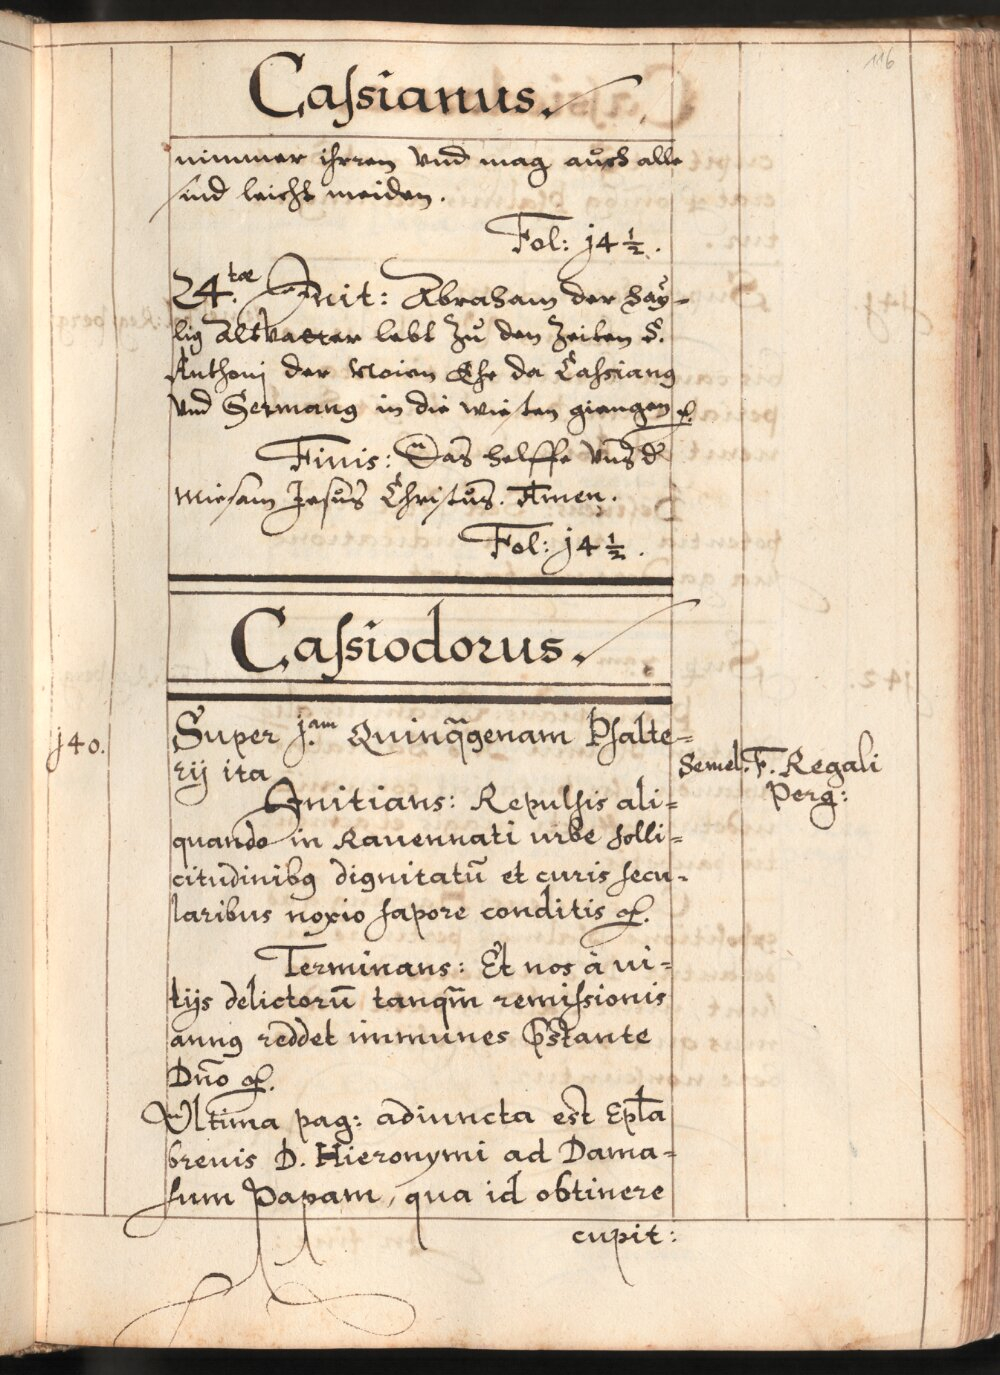 116
Caſsianus.
nimmer ihrren vnd mag auch alle
sind leicht meiden.
Fol: j4 ½.
24.tae Init: Abraham der hay=
lig Altvatter lebt zů den Zeiten S.
Anthonj der Ehr da Caſsianꝰ
vnd Germanꝰ in die wiesten giengen ꝛc.
Finis: Das helffe vnß d
Jesůs Christůs. Amen.
Fol: j4 ½.
Caſsiodorus.
j40.
Super j.am Quinq̄genam Pſalte=
rij ita
Semel. F. Regali
Perg:
Initians: Repulſis ali=
quando in Rauennati urbe ſolli=
citudinibꝰ dignitatū et curis ſecu=
laribus noxio ſapore conditis ꝛc.
Terminans: Et nos à ui=
tijs delictorū tanqm̄ remiſsionis
annꝰ reddet immunes p̄ſtante
Dn̄o ꝛc.
In Ultima pag: adiuncta est Epl̄a
breuis D. Hieronymi ad Dama=
ſum Papam, qua id obtinere
cupit: